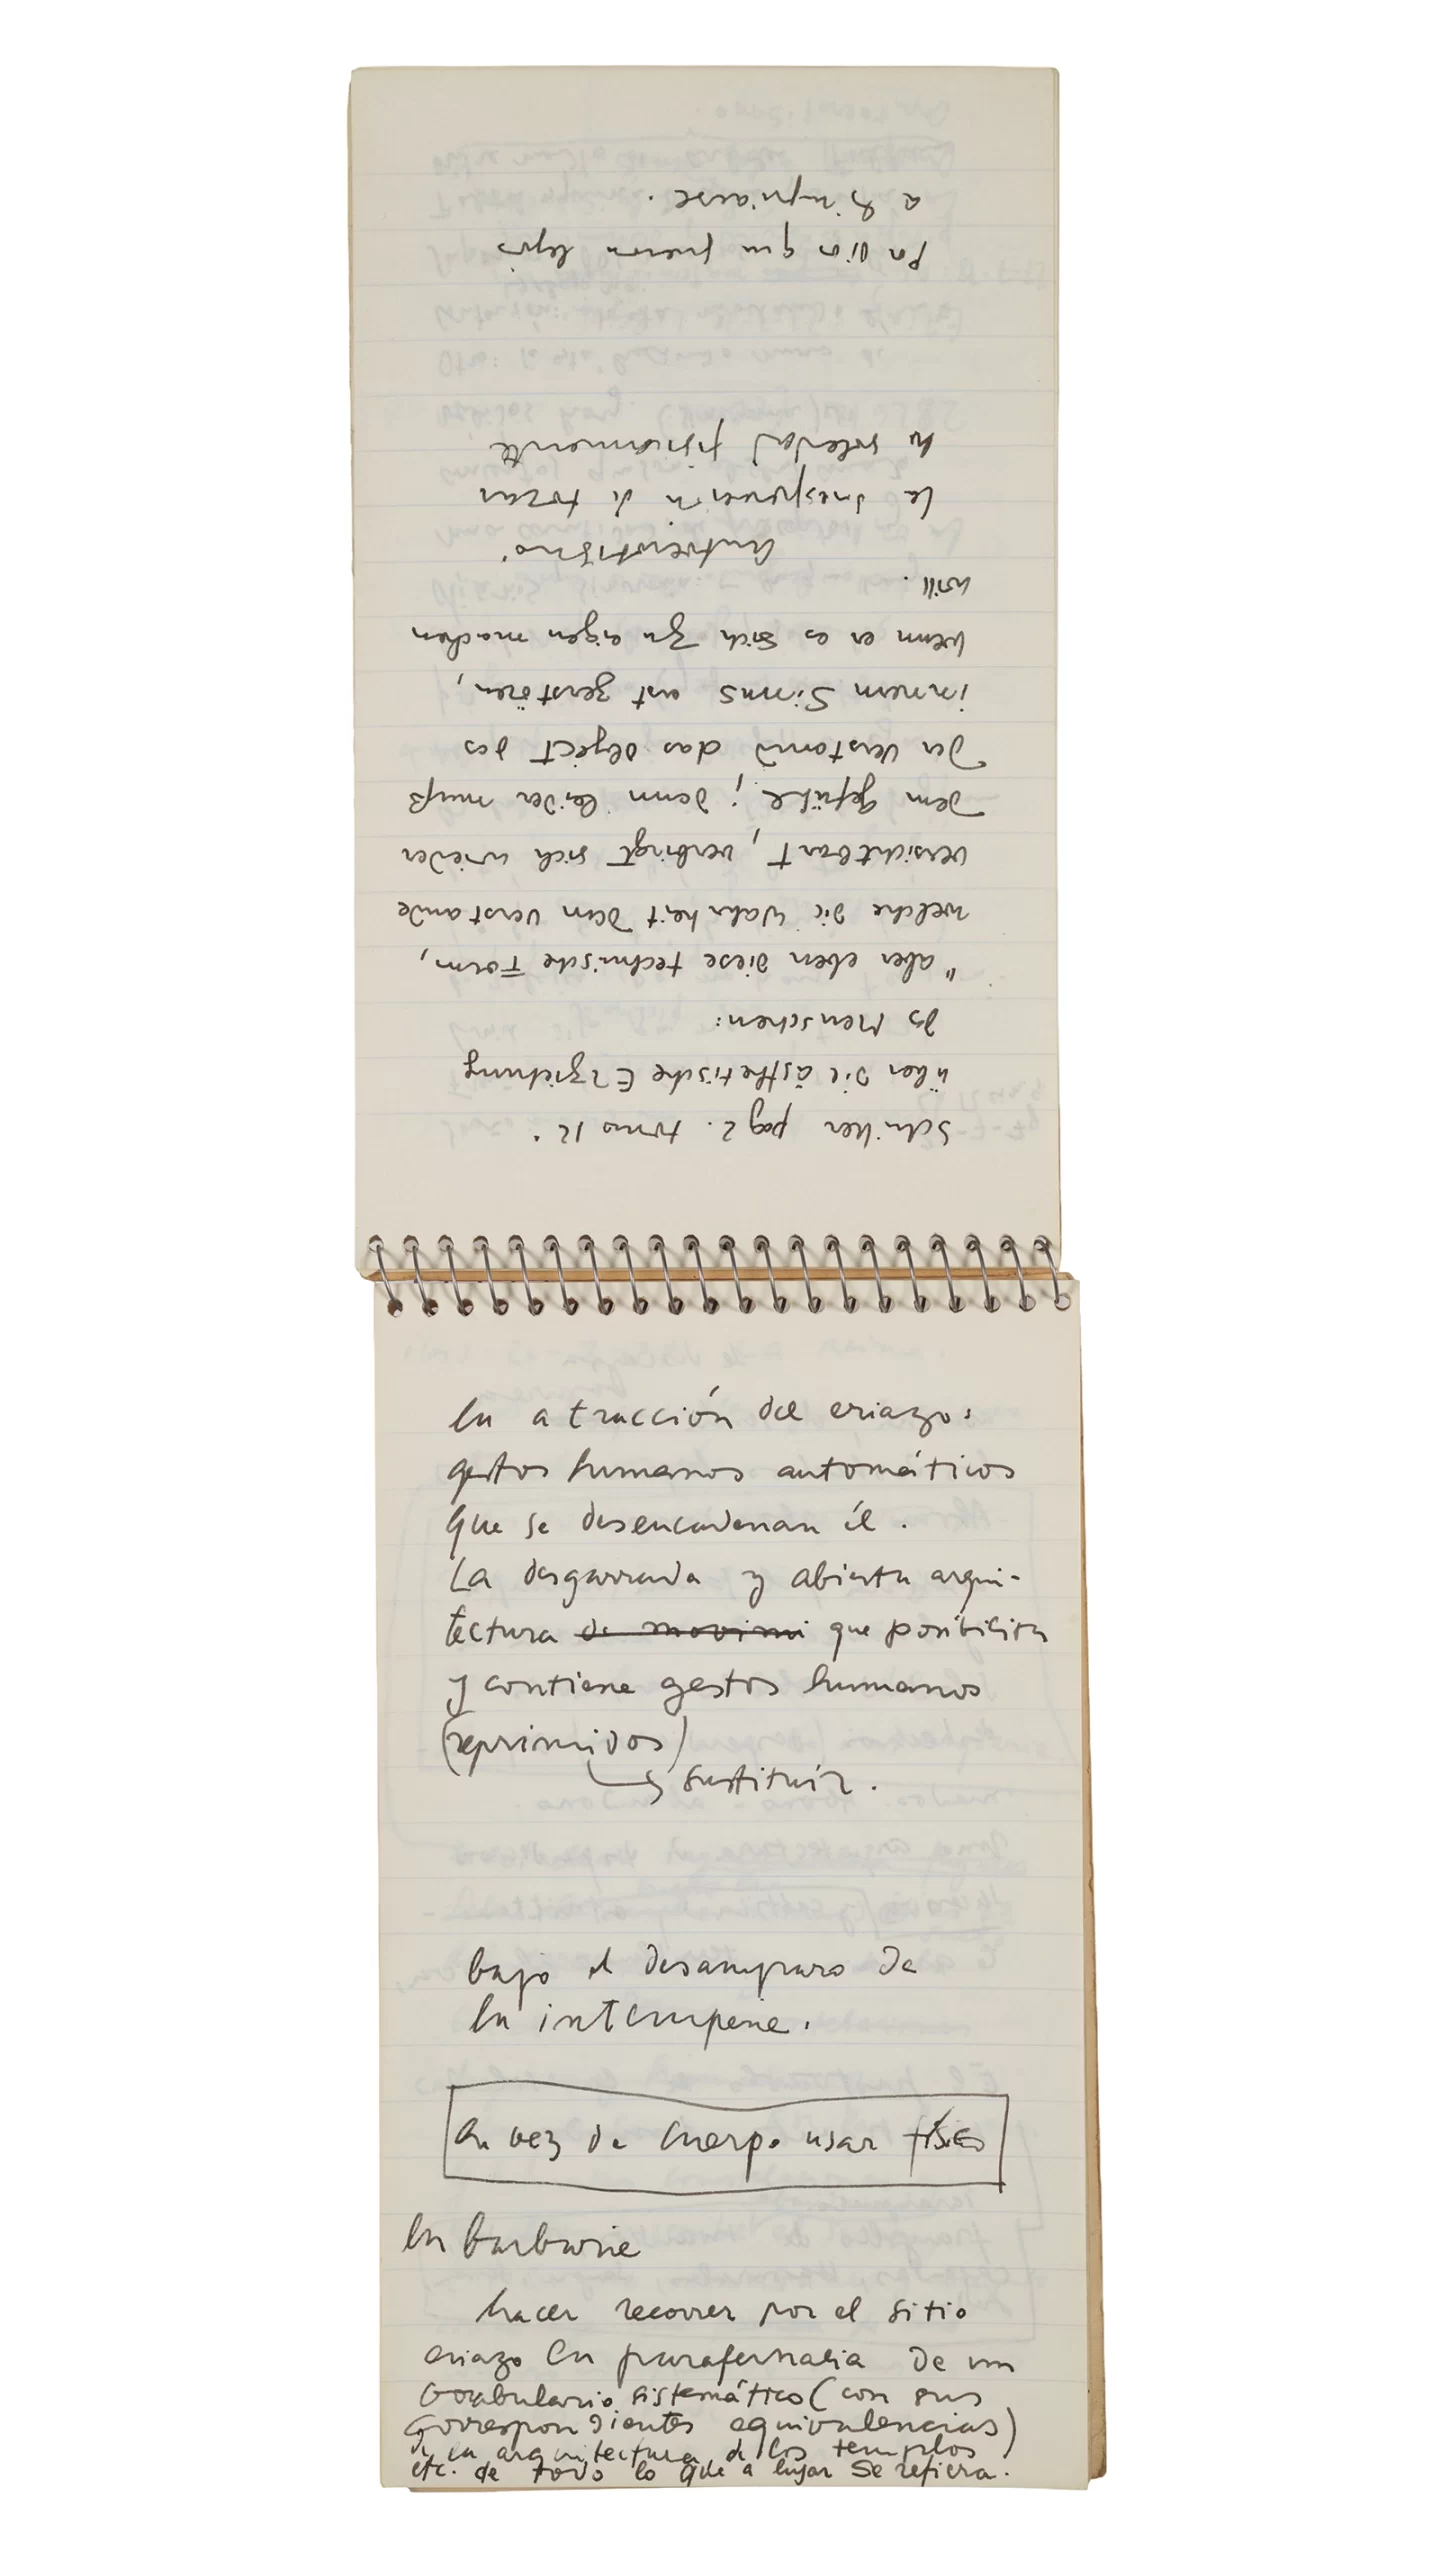 Schiller pag 2. tomo 12.
über die ästhetische Erziehung
ds Menschen:
"aber eben diese technische Form,
welche die Wahrheit dem Verstande
versichtbart, verbirgt sich wieder
dem Gefühl; denn leider muß
der Verstand das object des
innern Sinns erst zerstören,
wenn er es sich zu eigen machen
will.
Autoerotismo
la desesperación de tocar
la soledad físicamente
Pa dios que fueron lejos
a limpiarse.
la atracción del eriazo:
gestos humanos automáticos
que se desencadenan él.
La desgarrada y abierta arqui-
tectura de movimi que posibilita
y contiene gestos humanos
(reprimidos)
sustituir.
bajo el desamparo de
la intemperie.
en vez de cuerpo usar físico
la barbarie
hacer recorrer por el sitio
eriazo la parafernalia de un
vocabulario sistemático (con sus
correspondientes equivalencias)
de la arquitectura, de los templos
etc. de todo lo que a lugar se refiera.